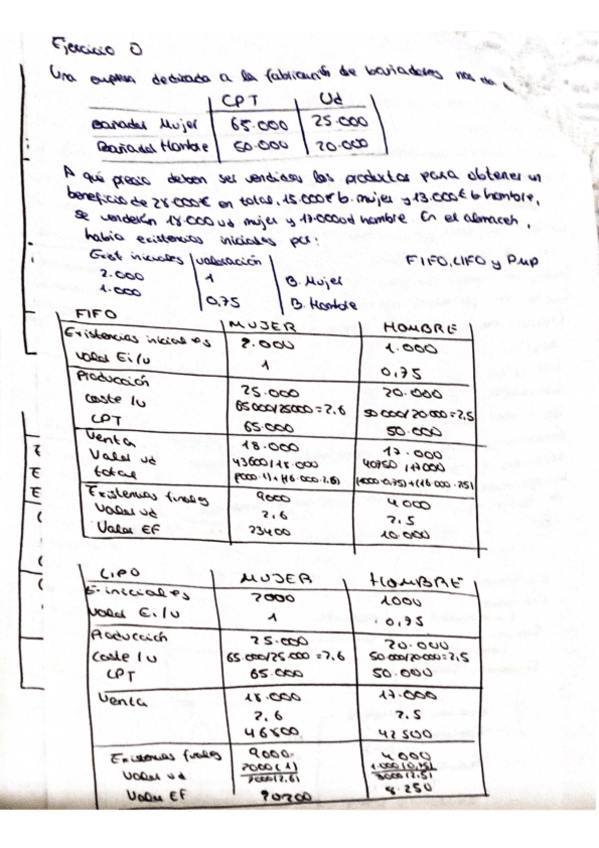 Ejercicio 0
Una empresa dedicada a la fabricación de bañadores nos da
CPT Ud
Bañador Mujer 65.000 25.000
Bañador Hombre 50.000 20.000
A qué precio deben ser vendidos los productos para obtener un
beneficio de 28.000€ en total, 15.000€ b. mujer y 13.000€ b hombre,
se venderán 18.000 ud mujer y 17.000 ud hombre. En el almacen,
había existencias iniciales por:
Exist iniciales valoración FIFO, LIFO y PMP
2.000 1 B. Mujer
1.000 0,75 B. Hombre
FIFO MUJER HOMBRE
Existencias iniciales 2.000 1.000
Valor Ei/u 1 0,75
Producción 25.000 20.000
coste /u 65000/25000=2,6 50000/20000=2,5
CPT 65.000 50.000
Venta 18.000 17.000
Valor ud 43600/18.000 40750/17000
total (2000·1)+(16·000·2.6) (1000·0,75)+(16·000·2.5)
Existencias finales 9000 4000
Valor ud 2,6 2,5
Valor EF 23400 10.000
LIFO MUJER HOMBRE
E. iniciales 2000 1000
Valor Ei/u 1 0,75
Producción 25.000 20.000
Coste /u 65000/25.000=2,6 50.000/20000=2,5
CPT 65.000 50.000
Venta 18.000 17.000
2,6 2,5
46800 42500
Existencias finales 9000 4000
Valor ud 2000(1) 1.000(0,75)
7000(2,6) 3000(2,5)
Valor EF 20200 8.250